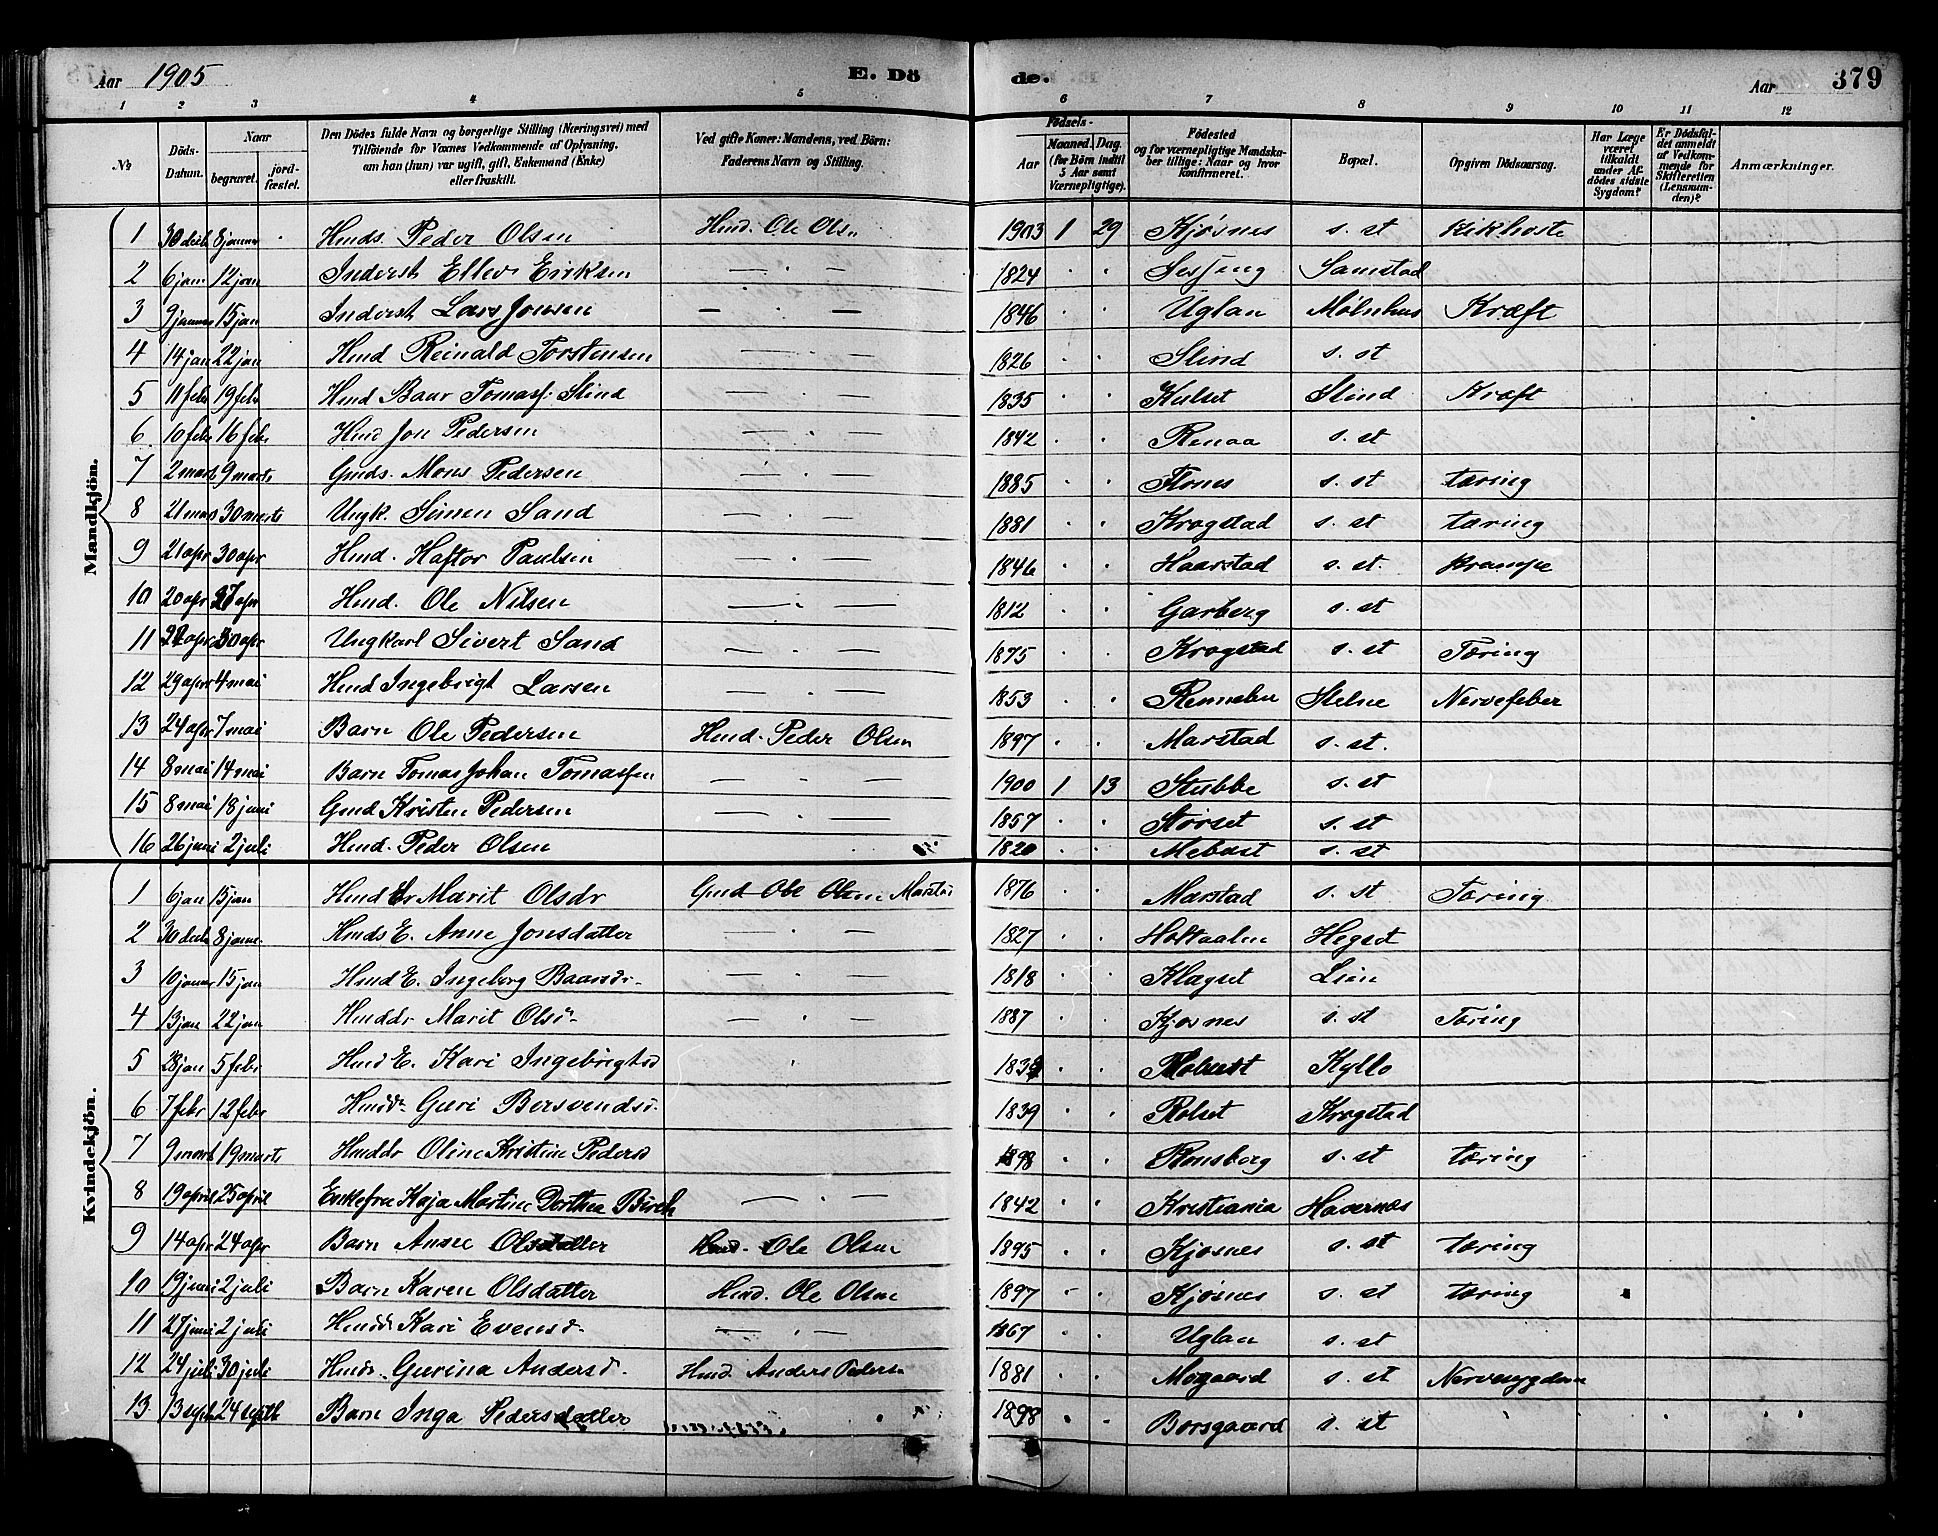 Aar 1905 E. Dö de. Aar 379
1 2 3 4 5 6 7 8 9 10 11 12
№ Döds-Datum. Naar begravet. jord-fæstet. Den Dödes fulde Navn og borgerlige Stilling (Næringsvei) med Tilföiende for Voxnes Vedkommende af Oplysning, om han (hun) var ugift, gift, Enkemand (Enke) eller fraskilt. Ved gifte Koner: Mandens, ved Börn: Faderens Navn og Stilling. Födsels- Aar Maaned. Dag. (for Börn indtil 5 Aar samt Værnepligtige). Födested og for værnepligtige Mandskaber tillige: Naar og hvor konfirmeret. Bopæl. Opgiven Dödsaarsag. Har Læge været tilkaldt under Afdödes sidste Sygdom? Er Dödsfaldet anmeldt af Vedkommende for Skifteretten (Lensmanden)? Anmærkninger.
Mandkjön.
1 30 decb 8 januar Hmds. Peder Olsen Hmd. Ole Olsn 1903 1 29 Kjøsnes s. st Kikhoste
2 6 jan 12 jan Inderst Ellev Eriksen 1824 Selsjeng Samstad
3 9 januar 15 jan Inderst Lars Jonsen 1846 Uglan Mölnhus Kræft
4 14 jan 22 jan Hmd Reinald Torstensen 1826 Slind s. st
5 11 febr 19 febr Hmd Baar Tomass. Slind 1835 Kulset Slind Kræft
6 10 febr 16 febr Hmd Jon Pedersen 1842 Renaa s. st
7 2 mars 9 marts Gmds. Mons Pedersen 1885 Flones s. st tæring
8 21 mars 30 marts Ungk. Simen Sand 1881 Krogstad s. st tæring
9 21 apr 30 apr Hmd. Haftor Paulsen 1846 Haarstad s. st. Krampe
10 20 apr 27 apr Hmd. Ole Nilsen 1812 Garberg s. st
11 22 apr 30 apr Ungkarl Sivert Sand 1875 Krogstad s. st Tæring
12 29 apr 4 mai Hmd Ingebrigt Larsen 1853 Rennebu Stelne Nervefeber
13 24 apr 7 mai Barn Ole Pedersen Hmd. Peder Olsen 1897 Marstad s. st.
14 8 mai 14 mai Barn Tomas Johan Tomassen 1900 1 13 Stubbe s. st
15 8 mai 18 juni Gmd Kristen Pedersen 1857 Størset s. st
16 26 juni 2 juli Hmd. Peder Olsen 1820 Mebust s. st
Kvindekjön.
1 6 jan 15 jan Marit Olsdr Gmd Ole Olsen Marstad 1876 Marstad s. st Tæring
2 30 decbr 8 janr. Hmds E. Anne Jonsdatter 1827 Holtaalen Hegset
3 10 januar 15 jan Hmd E. Ingeborg Baarsdr. 1818 Klegset Lien
4 13 jan 22 jan Hmddr Marit Olsd. 1887 Kjøsnes s. st Tæring
5 28 jan 5 febr Hmd E. Kari Ingebrigtsd Kyllo
6 7 febr 12 febr Hmddr Guri Bersvendsd. 1839 Rolset Krogstad
7 9 mart 19 marts Hmddr Oline Kristine Pedersd 1898 Rønsberg s. st tæring
8 19 april 25 april Enkefru Kaja Martine Dorthea Birch 1842 Kristiania Havernæs
9 14 apr 24 apr Barn Anne Olsdatter Hmd. Ole Olsen 1895 Kjøsnes s. st tæring
10 19 juni 2 juli Barn Karen Olsdatter Hmd. Ole Olsen 1897 Kjøsnes s. st tæring
11 27 juni 2 juli Hmdd. Kari Evensd. 1867 Uglan s. st
12 24 juli 30 juli Hmdr. Gurina Andersd. Hmd. Anders Pedersn 1881 Mogaard s. st Nervesygdom
13 13 septb 24 septb Barn Inga Pedersdatter 1898 Borsgaard s. st